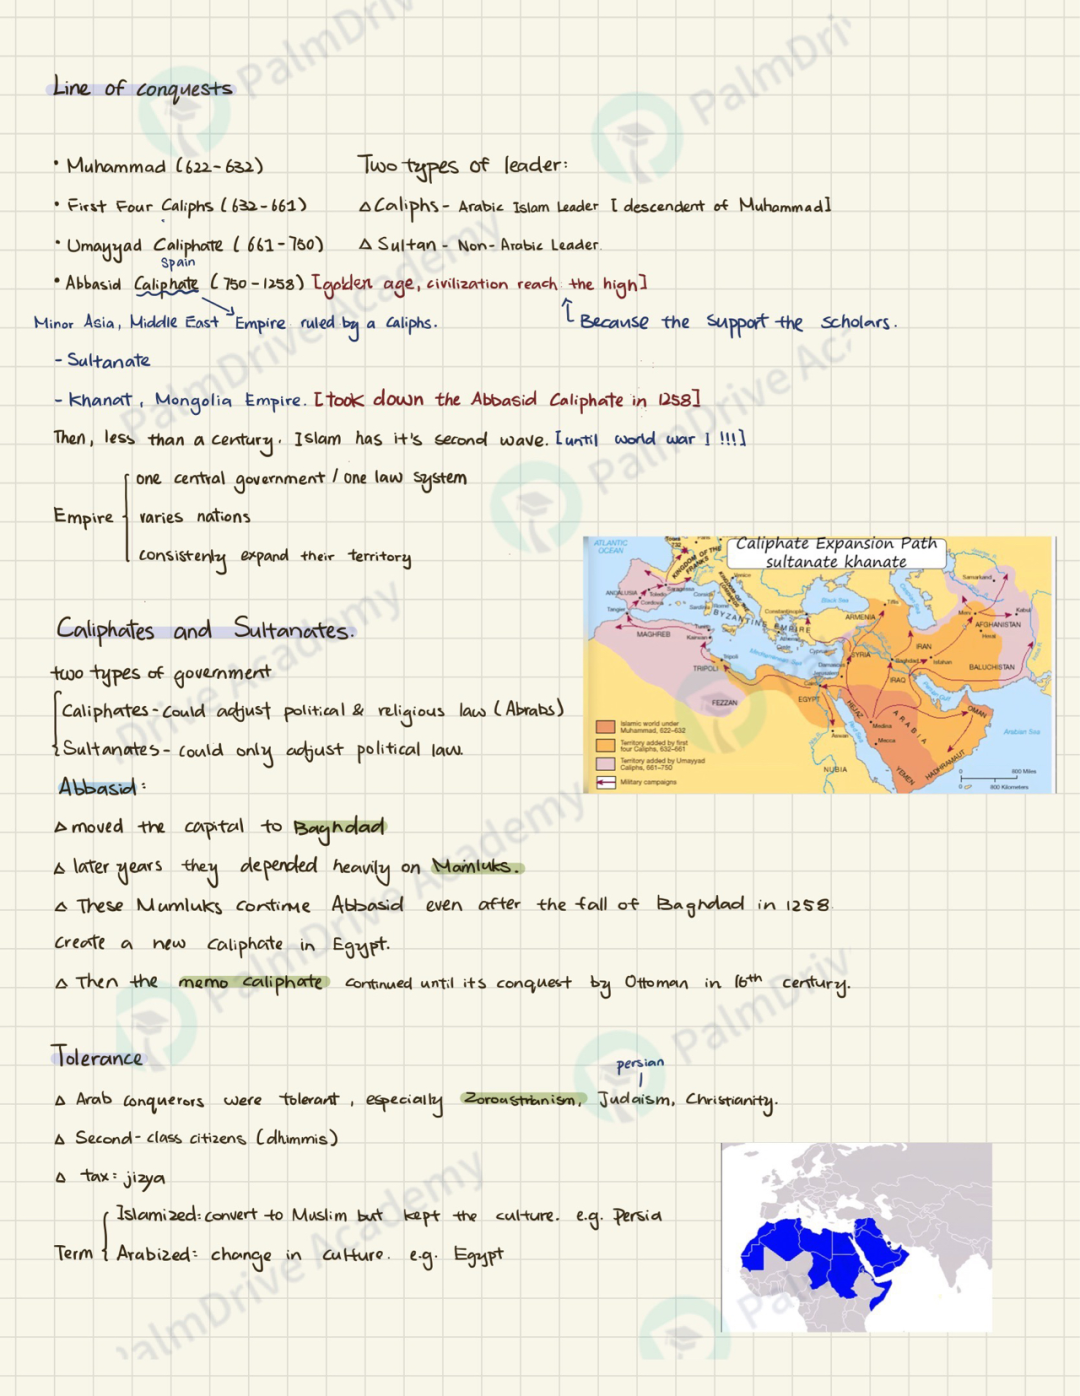 Line of conquests
• Muhammad (622-632)
Two types of leader:
• First Four Caliphs (632-661)
△ Caliphs - Arabic Islam Leader [descendent of Muhammad]
• Umayyad Caliphate (661-750)
△ Sultan - Non-Arabic Leader.
Spain
• Abbasid Caliphate (750-1258) [golden age, civilization reach the high]
Minor Asia, Middle East Empire ruled by a Caliphs.
Because the support the scholars.
- Sultanate
- Khanat, Mongolia Empire. [took down the Abbasid Caliphate in 1258]
Then, less than a century. Islam has it's second wave. [until world war 1 !!!]
Empire
one central government / one law system
varies nations
consistenly expand their territory
Caliphate Expansion Path
sultanate khanate
ATLANTIC
OCEAN
Tours
732
KINGDOM OF THE
FRANKS
ANDALUSIA
Toledo
Saragossa
Cordova
Tangier
MAGHREB
Corsica
Sardinia
Rome
Venice
BYZANTINE EMPIRE
Constantinople
Black Sea
Athens
Crete
Cyprus
Mediterranean Sea
Tunis
Kairwan
Tripoli
TRIPOLI
FEZZAN
ARMENIA
Tiflis
Caspian Sea
Samarkand
Merv
Kabul
AFGHANISTAN
Herat
IRAN
SYRIA
Damascus
Jerusalem
Baghdad
Isfahan
BALUCHISTAN
IRAQ
Persian Gulf
Cairo
EGYPT
HEJAZ
ARABIA
OMAN
Medina
Mecca
Red Sea
Aswan
NUBIA
YEMEN
HADHRAMAUT
Arabian Sea
Islamic world under
Muhammad, 622-632
Territory added by first
four Caliphs, 632-661
Territory added by Umayyad
Caliphs, 661-750
Military campaigns
0 600 Miles
0 800 Kilometers
Caliphates and Sultanates.
two types of government
Caliphates - could adjust political & religious law (Abrabs)
Sultanates - could only adjust political law.
Abbasid:
△ moved the capital to Baghdad
△ later years they depended heavily on Mamluks.
△ These Mumluks continue Abbasid even after the fall of Baghdad in 1258.
Create a new caliphate in Egypt.
△ Then the memo caliphate continued until its conquest by Ottoman in 16th century.
Tolerance
persian
△ Arab conquerors were tolerant, especially Zoroastrianism, Judaism, Christianity.
△ Second-class citizens (dhimmis)
△ tax: jizya
Term
Islamized: convert to Muslim but kept the culture. e.g. Persia
Arabized: change in culture. e.g. Egypt
PalmDrive Academy